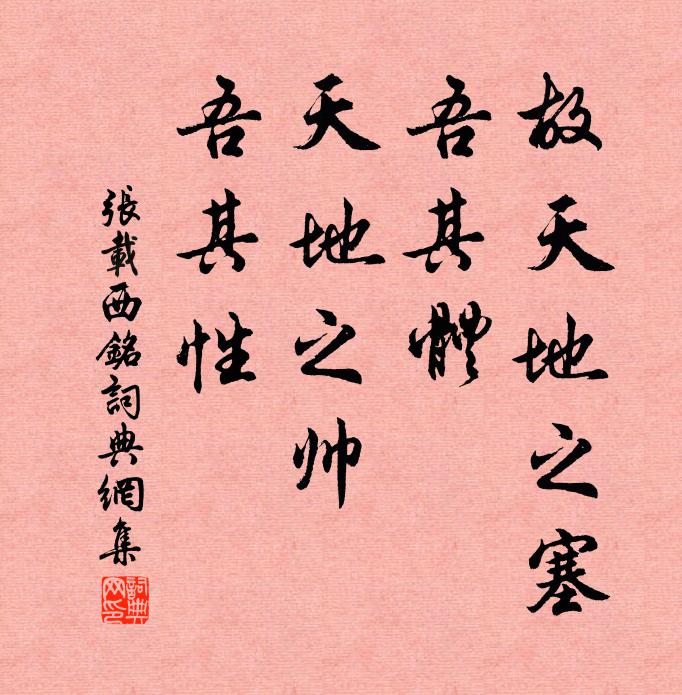 故天地之塞
吾其體
天地之帅
吾其性
張載西銘詞典網集
詞典
网印